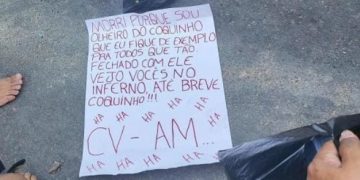 MORRI PORQUE SOU
OLHEIRO DO COQUINHO
QUE EU FIQUE DE EXEMPLO
PRA TODOS QUE TÃO
FECHADO COM ELE
VEJO VOCÊS NO
INFERNO, ATÉ BREVE
COQUINHO!!!
HA HA HA HA HA
CV-AM...
HA HA HA HA HA